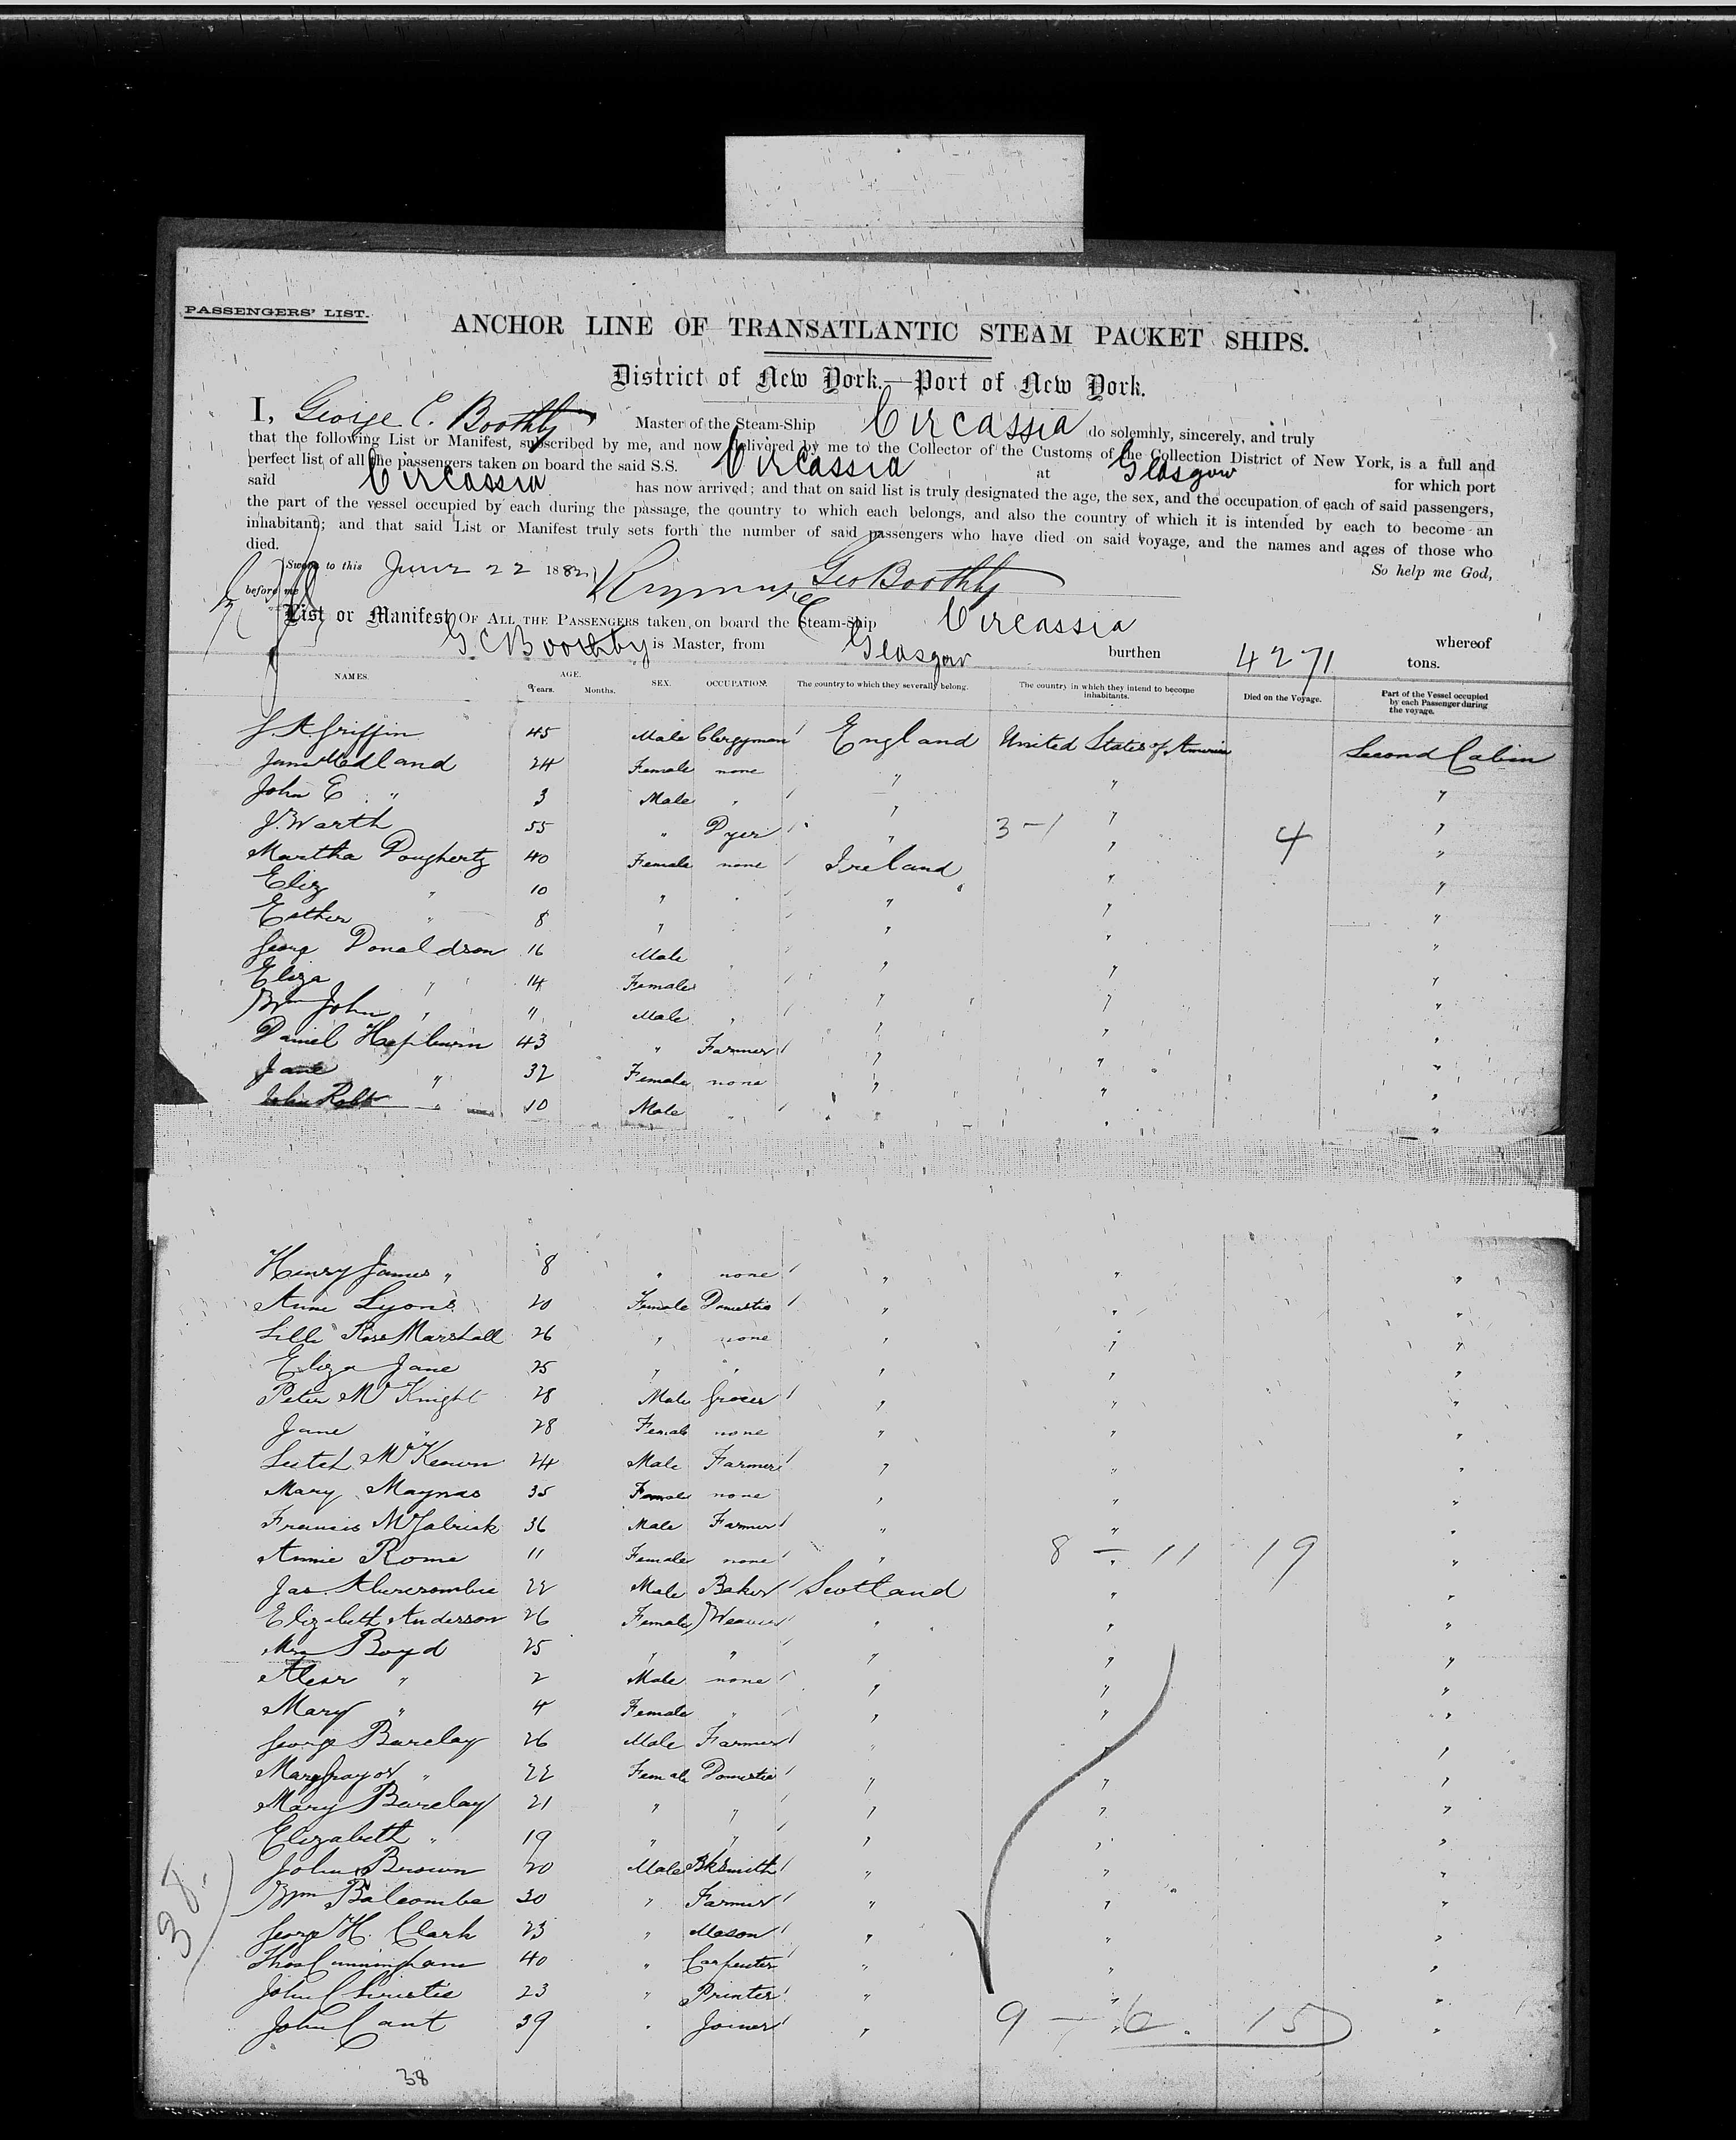 PASSENGERS' LIST. 1.
ANCHOR LINE OF TRANSATLANTIC STEAM PACKET SHIPS.
District of New York.—Port of New York.
I, George C. Boothby Master of the Steam-Ship Circassia do solemnly, sincerely, and truly
that the following List or Manifest, subscribed by me, and now delivered by me to the Collector of the Customs of the Collection District of New York, is a full and
perfect list of all the passengers taken on board the said S.S. Circassia at Glasgow for which port
said Circassia has now arrived; and that on said list is truly designated the age, the sex, and the occupation of each of said passengers,
the part of the vessel occupied by each during the passage, the country to which each belongs, and also the country of which it is intended by each to become an
inhabitant; and that said List or Manifest truly sets forth the number of said passengers who have died on said voyage, and the names and ages of those who
died. So help me God,
Sworn to this June 22 1882 Geo Boothby
before me
List or Manifest OF ALL THE PASSENGERS taken on board the Steam-Ship Circassia whereof
G C Boothby is Master, from Glasgow burthen 4271 tons.
NAMES. AGE. Years. Months. SEX. OCCUPATION. The country to which they severally belong. The country in which they intend to become inhabitants. Died on the Voyage. Part of the Vessel occupied by each Passenger during the voyage.
J. A. Griffin 45 Male Clergyman England United States of America Second Cabin
Jane Medland 24 Female none " " "
John E " 3 Male " " " "
J. Warth 55 " Dyer " 3-1 " 4 "
Martha Dougherty 40 Female none Ireland " "
Eliz " 10 " " " " "
Esther " 8 " " " "
Georg Donaldson 16 Male " " " "
Eliza " 14 Female " " "
Wm John " " Male " " " "
Daniel Hepburn 43 " Farmer " " "
Jane " 32 Female none " " "
John Robt " 10 Male " " " "
Henry James " 8 " none " " "
Anne Lyons 20 Female Domestic " " "
Lilli Rose Marshall 26 " none " " "
Eliza Jane 25 " " " " "
Peter McKnight 28 Male Grocer " " "
Jane " 28 Female none " " "
McKeown 24 Male Farmer " " "
Mary Maynas 35 Female none " " "
Francis 36 Male Farmer " " "
Annie Rome 11 Female none " 8 - 11 19 "
Jas. Abercrombie 22 Male Baker Scotland " "
Elizabeth Anderson 26 Female Weaver " " "
Mrs Boyd 25 " " " " "
" 2 Male none " " "
Mary " 4 Female " " " "
George Barclay 26 Male Farmer " " "
" 22 Female Domestic " " "
Mary Barclay 21 " " " " "
Elizabeth " 19 " " " " "
John Brown 20 Male Bksmith " " "
Wm Balcombe 30 " Farmer " " "
George H. Clark 23 " Mason " " "
Thos Cunningham 40 " Carpenter " " "
John Christie 23 " Printer " " "
John Cant 39 " Joiner " 9 - 6 15 "
38
38